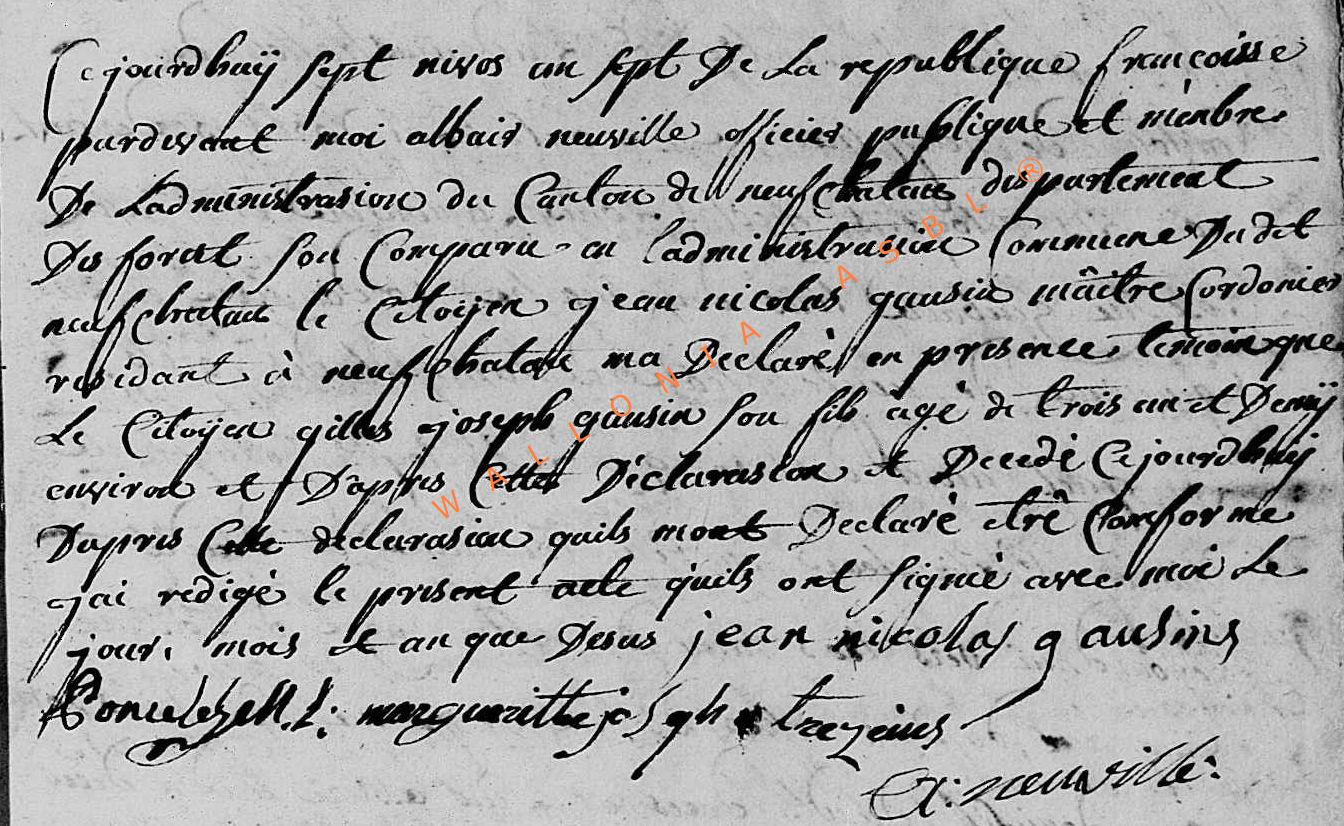 Cejourdhuÿ sept nivos an sept De La republique françoisse
pardevant moi albair neuville officier publique et membre
De Ladministrasion du Canton de neufchatau dispartement
Des foret son Comparu en ladministrasion Commune Dudit
neufchatau le Citoyen jean nicolas gausin mâitre Cordonier
residant à neufchatau ma Declarè en presence temoin que
Le Citoyen gilles joseph gausin son fils âgè de trois an et Demÿ
environ et D'apres Cette Dèclarasion et Decedè Cejourdhuÿ
D'apres Cette declarasion quils mont Declarè etrê Comforme
jai redigè le present acte quils ont signiè avec moi Le
jour, mois et an que Desus jean nicolas gausins
margueritte joseph trezeins
A: neuville:
WALLONIA ASBL ®